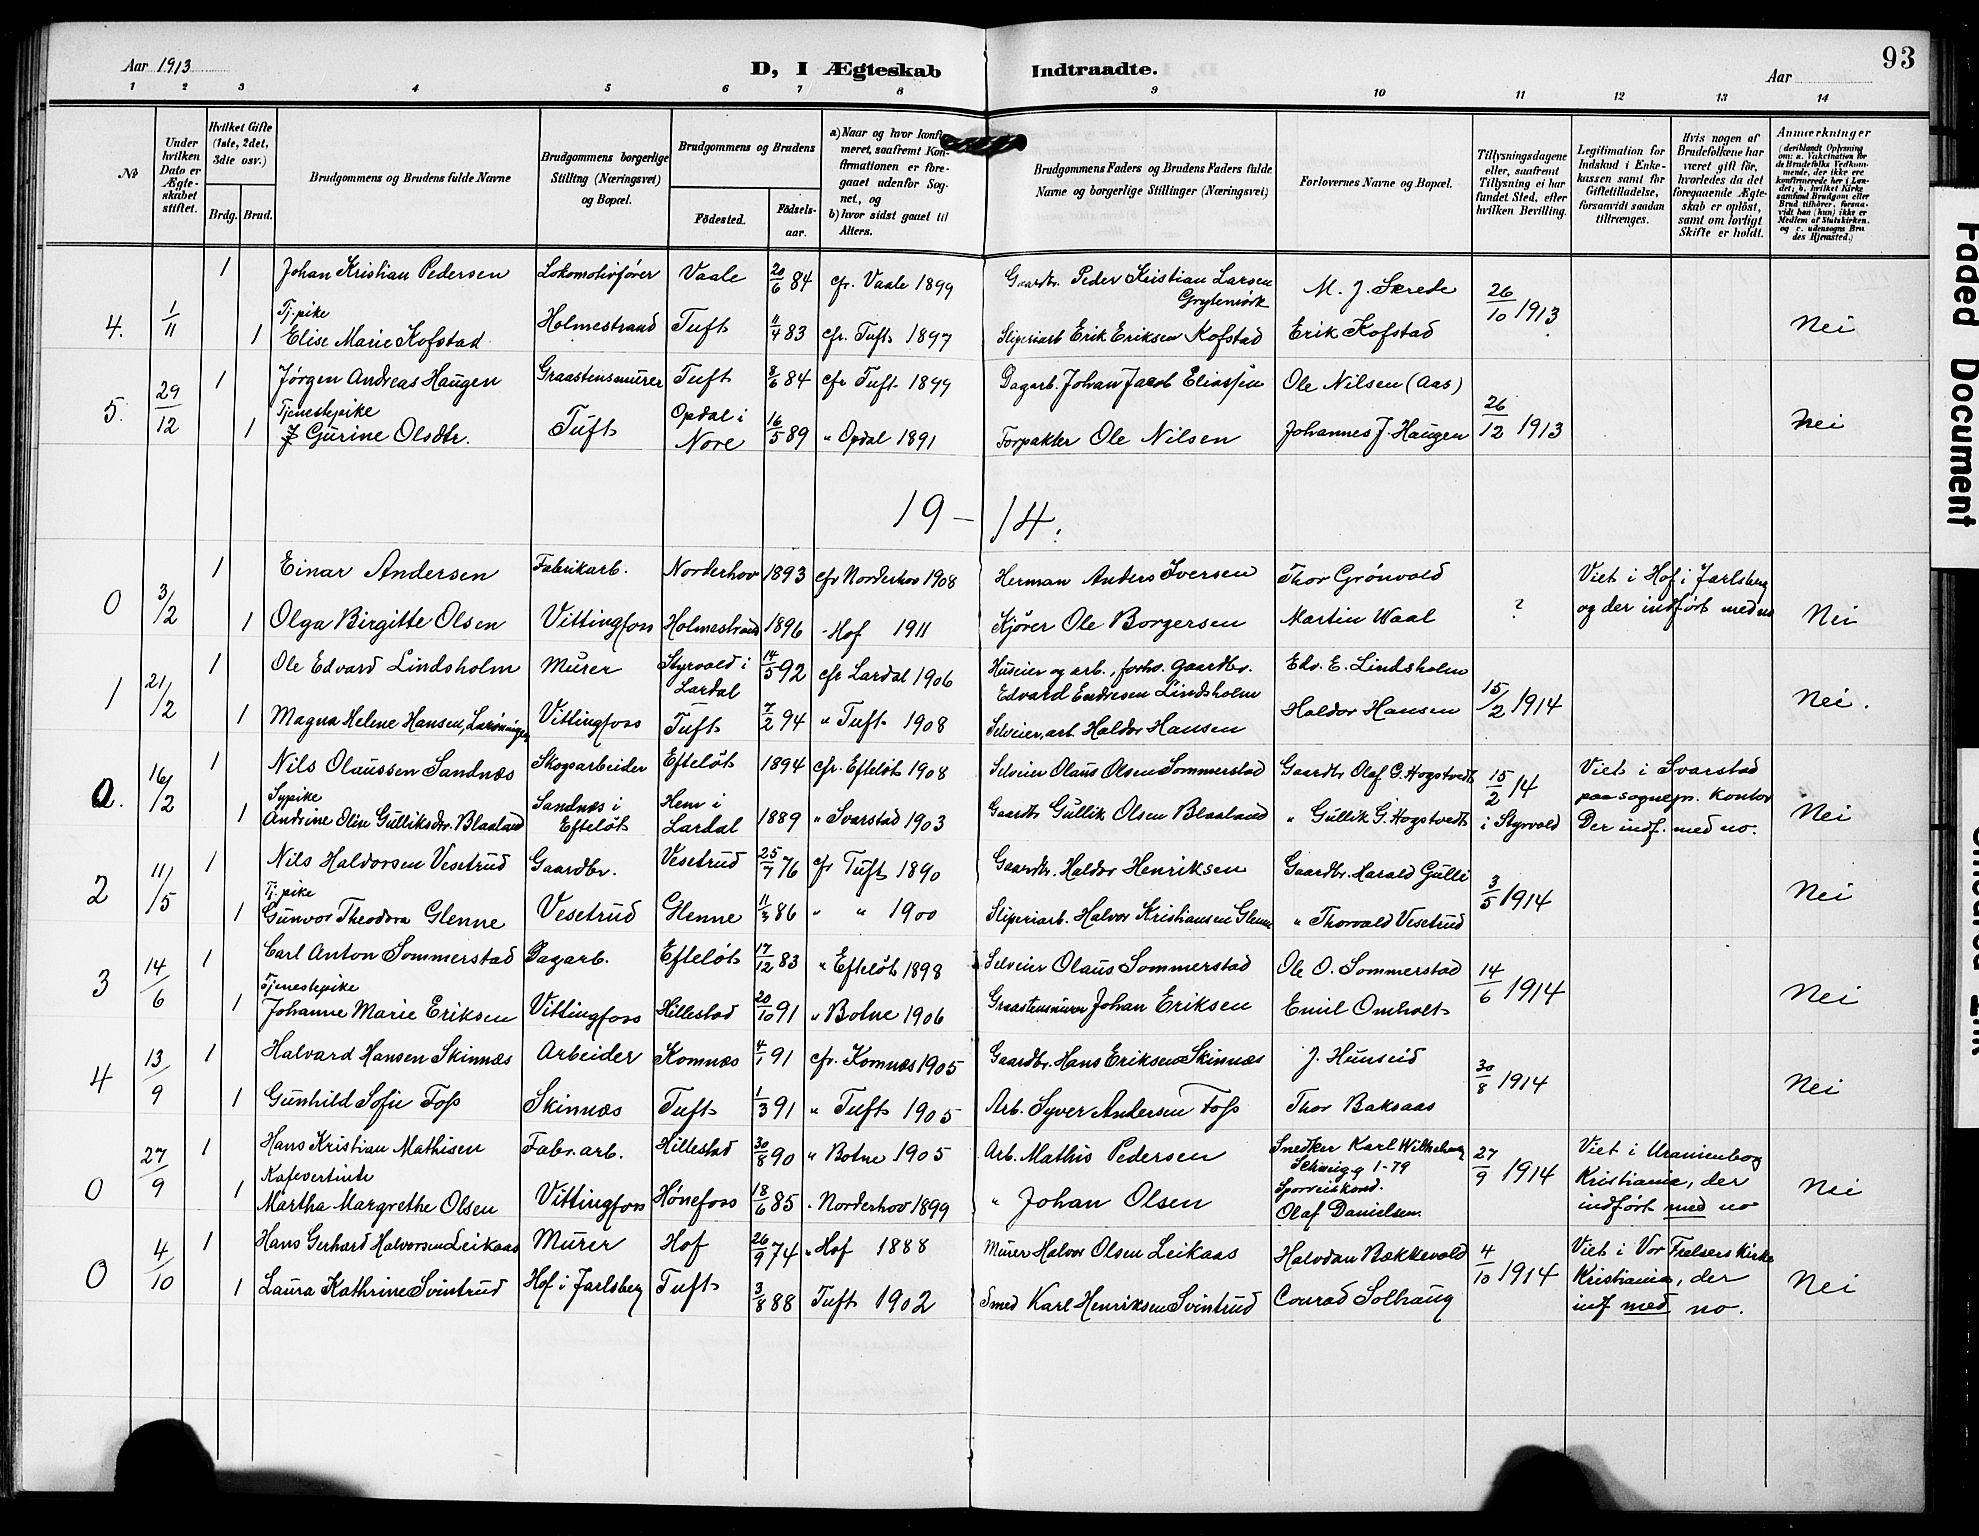 Aar 1913
D, I Ægteskab Indtraadte.
Aar
93
1 2 3 4 5 6 7 8 9 10 11 12 13 14
No
Under hvilken Dato er Ægteskabet stiftet.
Hvilket Gifte (1ste, 2det, 3dte osv.)
Brdg. Brud.
Brudgommens og Brudens fulde Navne
Brudgommens borgerlige Stilling (Næringsvei) og Bopæl.
Brudgommens og Brudens
Fødested.
Fødselsaar.
a) Naar og hvor konfirmeret, saafremt Konfirmationen er foregaaet udenfor Sognet, og b) hvor sidst gaaet til Alters.
Brudgommens Faders og Brudens Faders fulde Navne og borgerlige Stillinger (Næringsvei)
Forlovernes Navne og Bopæl.
Tillysningsdagene eller, saafremt Tillysning ei har fundet Sted, efter hvilken Bevilling.
Legitimation for Indskud i Enkekassen samt for Giftetilladelse, forsaavidt saadan tiltrænges.
Hvis nogen af Brudefolkene har været gift før, hvorledes da det foregaaende Ægteskab er opløst, samt om lovligt Skifte er holdt.
Anmærkninger (deriblandt Oplysning om: a. Vakcination for de Brudefolks Vedkommende, der ikke ere konfirmerede her i Landet; b. hvilket Kirkesamfund Brudgom eller Brud tilhører, forsaavidt han (hun) ikke er Medlem af Statskirken, og c. udensogns Brudes Hjemsted.)
1 Johan Kristian Pedersen Lokomotivfører Vaale 20/6 84 cfr. Vaale 1899 Gaardbr. Peder Kristian Larsen Grytemørk M. J. Skrede
4. 1/11 1 Tj.pike Elise Marie Kofstad Holmestrand Tuft 11/4 83 cfr. Tuft 1897 Sliperiarb Erik Eriksen Kofstad Erik Kofstad 26/10 1913 Nei
1 Jørgen Andreas Haugen Graastensmurer Tuft 8/6 84 cfr Tuft 1899 Dagarb. Johan Jacob Eliassen Ole Nilsen (Aas)
5. 29/12 1 Tjenestepike Gurine Olsdtr. Tuft Opdal i Nore 16/5 89 " Opdal 1891 Torpakter Ole Nilsen Johannes J. Haugen 26/12 1913 Nei
19 - 14.
1 Einar Andersen Fabrikarb. Norderhov 1893 cfr Norderhov 1908 Herman Anders Iversen Thor Grönvold Viet i Hof i Jarlsberg
0 3/2 1 Olga Birgitte Olsen Vittingfoss Holmestrand 1896 - Hof 1911 Kjører Ole Borgersen Martin Waal ? og der indført med no Nei
1 Ole Edvard Lindsholm Murer Styrvold i Lardal 14/5 92 cfr Lardal 1906 Huseier og arb., forhv. gaardbr. Edvard Endresen Lindsholm Edv. E. Lindsholm
1 21/2 1 Magna Helene Hansen, Vittingfoss Tuft 7/2 94 " Tuft 1908 Selveier, arb. Haldor Hansen Haldor Hansen 15/2 1914 Nei.
1 Nils Olaussen Sandnæs Skogsarbeider Efteløt 1894 cfr. Efteløt 1908 Selveier Olaus Olsen Sommerstad Gaardbr Olaf G. Hogstvedt 15/2 14 Viet i Svarstad paa sognepr. kontor
0. 16/2 1 Sypike Andrine Olise Gulliksdtr. Blaaland Sandnæs i Efteløt Hem i Lardal 1889 " Svarstad 1903 Gaardbr Gullik Olsen Blaaland " Gullik G. Hogstvedt i Styrvold Der indf. med no. Nei
1 Nils Haldorsen Vesetrud Gaardbr. Vesetrud 25/7 76 cfr Tuft 1890 Gaardbr. Haldor Henriksen Gaardbr. Harald Gulli
2 11/5 1 Tj.pike Gunvor Theodora Glenne Vesetrud Glenne 11/3 86 " " 1900 Sliperiarb. Halvor Kristiansen Glenne " Thorvald Vesetrud 3/5 1914 Nei
1 Carl Anton Sommerstad Dagarb. Efteløt 17/12 83 " Efteløt 1898 Selveier Olaus Sommerstad Ole O. Sommerstad
3 14/6 1 Tjenestepike Johanne Marie Eriksen Vittingfoss Hillestad 20/10 91 " Botne 1906 Graastensmurer Johan Eriksen Emil Omholt 14/6 1914 Nei
1 Halvard Hansen Skinnæs Arbeider Komnæs 4/1 91 cfr. Komnæs 1905 Gaardbr. Hans Eriksen Skinnæs J. Hunseid
4 13/9 1 Gunhild Sofie Foss Skinnæs Tuft 1/3 91 " Tuft 1905 Arb. Syver Andersen Foss Thor Baksaas 30/8 1914 Nei
1 Hans Kristian Mathisen Fabr.arb. Hillestad 30/8 90 " Botne 1905 Arb. Mathis Pedersen Snedker Karl Wilhelmsen Schweigg 1-79 Viet i Uranienborg
0 27/9 1 Kafevertinde Martha Margrethe Olsen Vittingfoss Hønefoss 18/6 85 . Norderhov 1899 " Johan Olsen Sporveiskond. Olaf Danielsen. 27/9 1914 Kristiania, der indført med no Nei
1 Hans Gerhard Halvorsen Leikaas Murer Hof 26/9 74 " Hof 1888 Murer Halvor Olsen Leikaas Halvdan Bækkevold Viet i Vor Frelsers kirke
0 4/10 1 Laura Kathrine Svintrud Hof i Jarlsberg Tuft 3/8 88 Tuft 1902 Smed Karl Henriksen Svintrud Conrad Solhaug 4/10 1914 Kristiania, der inf med no. Nei
Faded Document